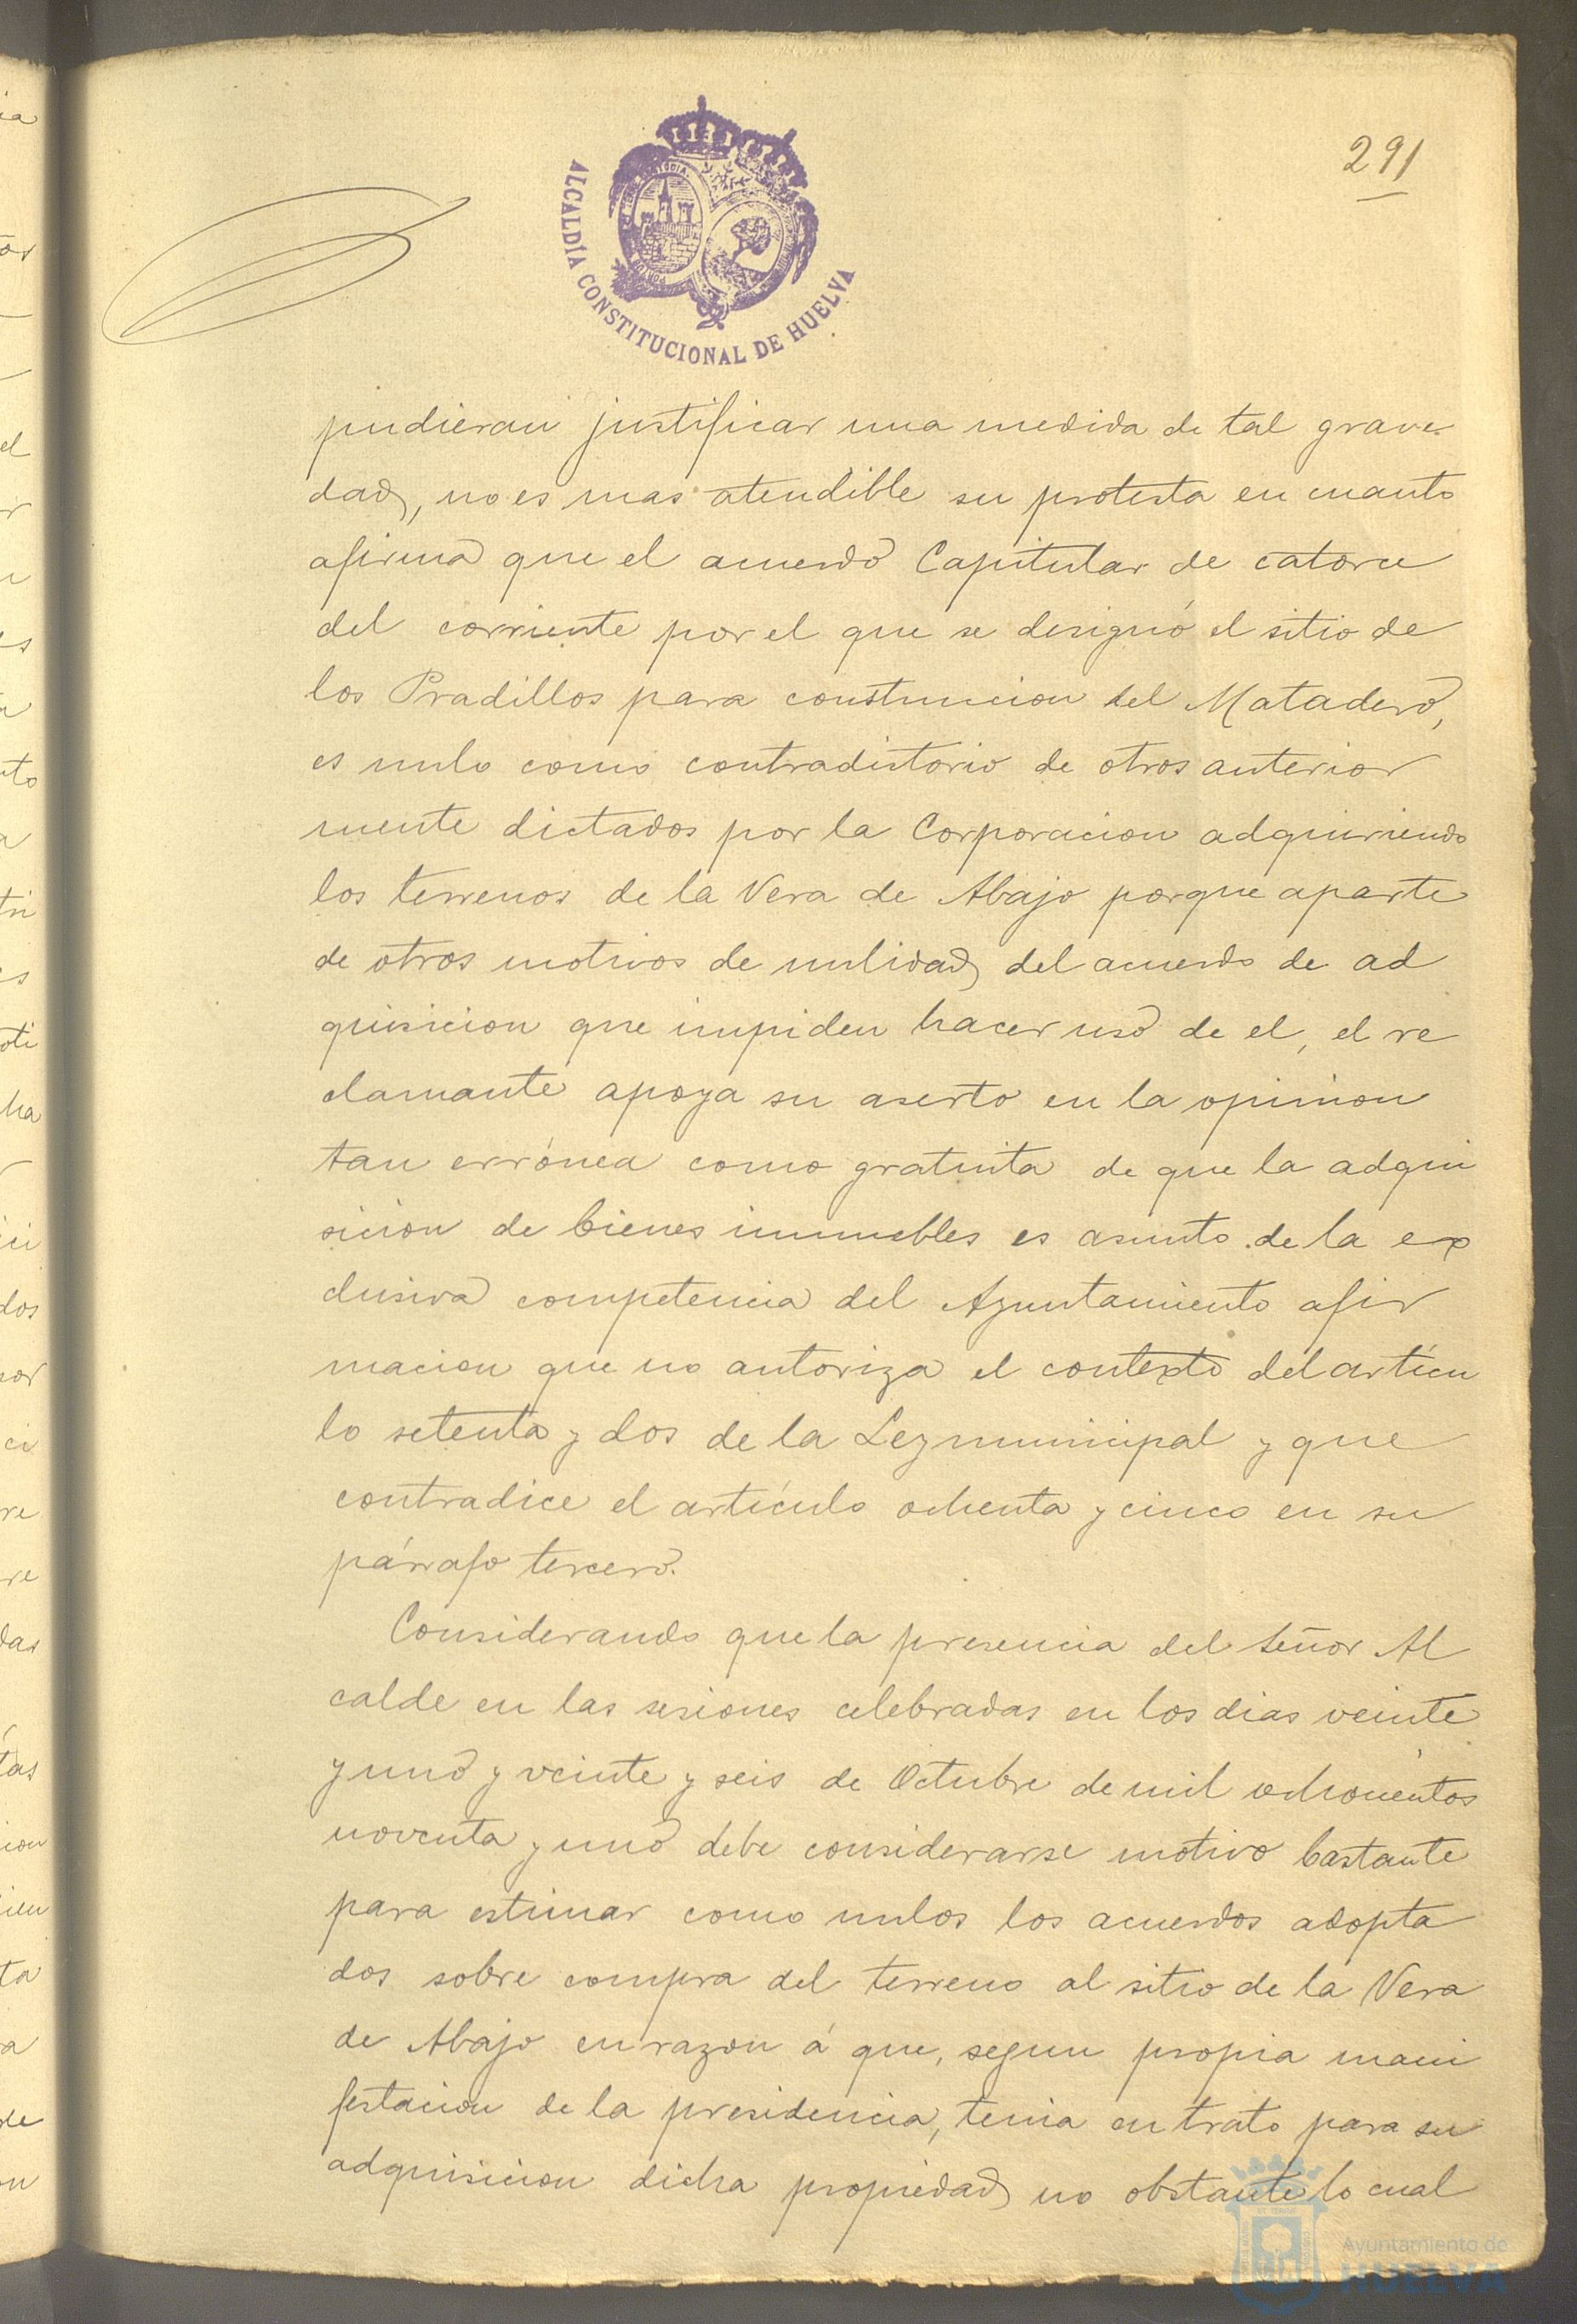 291
ALCALDÍA CONSTITUCIONAL DE HUELVA
pudieran justificar una medida de tal grave-
dad, no es mas atendible su protesta en cuanto
afirma que el acuerdo Capitular de catorce
del corriente por el que se designó el sitio de
los Pradillos para construccion del Matadero,
es nulo como contradictorio de otros anterior
mente dictados por la Corporacion adquiriendo
los terrenos de la Vera de Abajo porque aparte
de otros motivos de nulidad del acuerdo de ad
quisicion que impiden hacer uso de el, el re
clamante apoya su aserto en la opinion
tan errónea como gratuita de que la adqui
sicion de bienes inmuebles es asunto de la ex
clusiva competencia del Ayuntamiento afir
macion que no autoriza el contexto del artícu
lo setenta y dos de la Ley municipal y que
contradice el artículo ochenta y cinco en su
párrafo tercero.
Considerando que la presencia del Señor Al
calde en las sesiones celebradas en los dias veinte
y uno y veinte y seis de Octubre de mil ochocientos
noventa y uno debe considerarse motivo bastante
para estimar como nulos los acuerdos adopta
dos sobre compra del terreno al sitio de la Vera
de Abajo en razon á que, segun propia mani
festacion de la presidencia, tenia en trato para su
adquisicion dicha propiedad no obstante lo cual
Ayuntamiento de
HUELVA